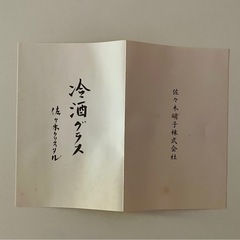 冷酒グラス
佐々木クリスタル
佐々木硝子株式会社